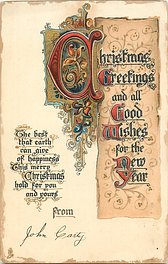 Christmas
Greetings
and all
Good
Wishes
for the
New
Year
The best
that earth
can give
of happiness
This merry
Christmas
hold for you
and yours
From
John Carty